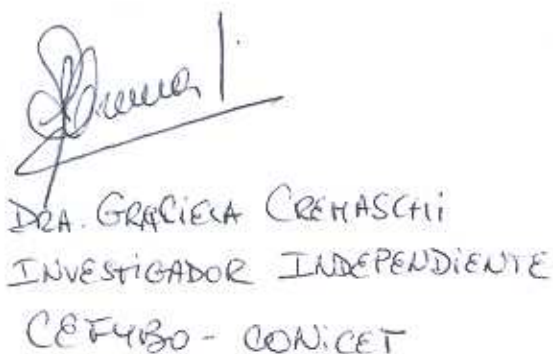 DRA. GRACIELA CREMASCHI
INVESTIGADOR INDEPENDIENTE
CEFYBO - CONICET